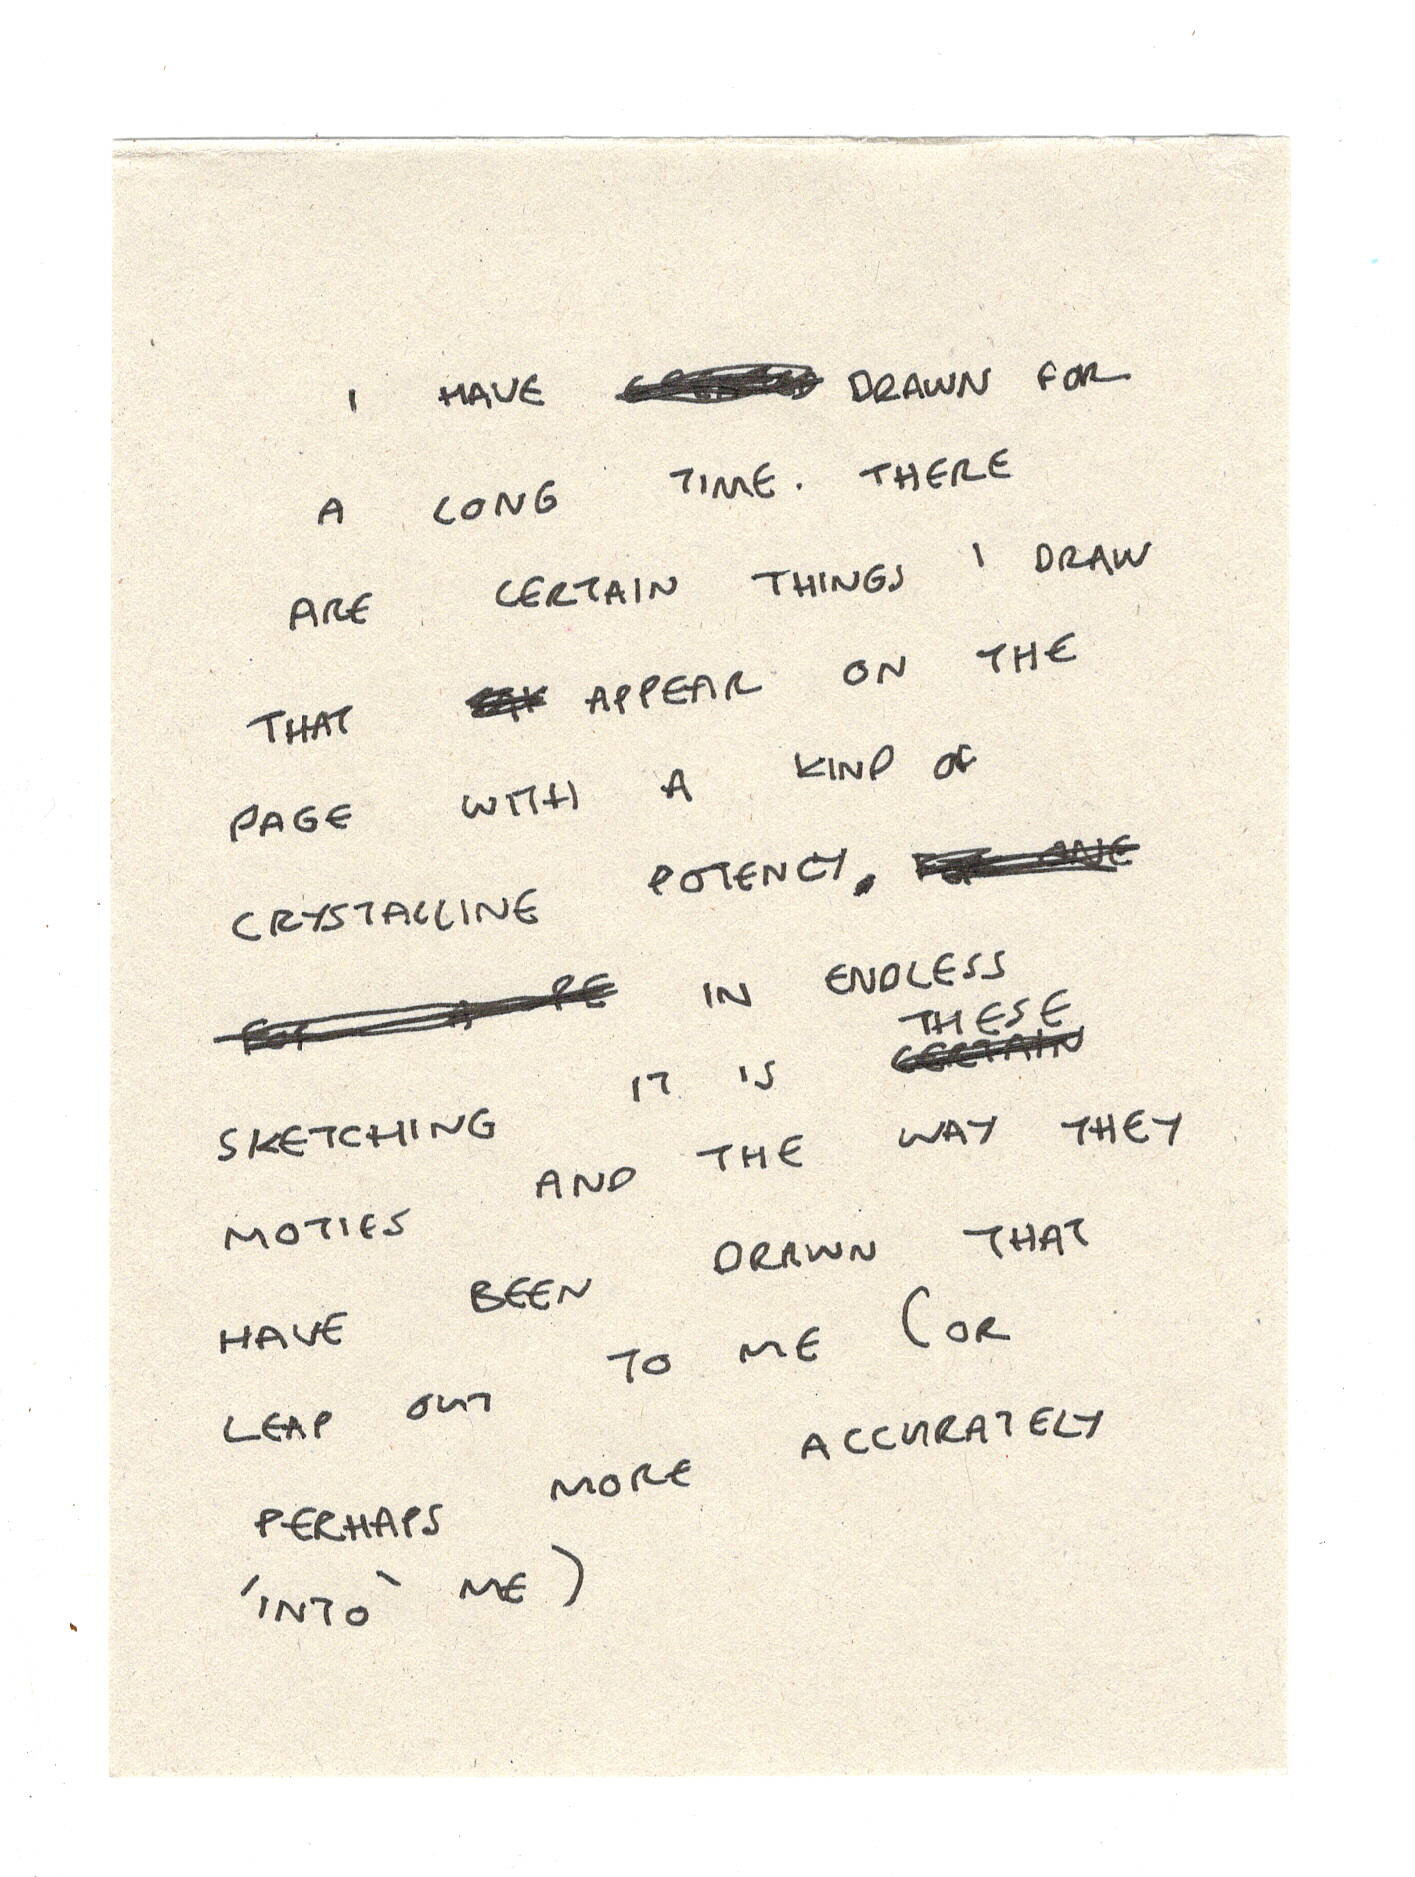 I HAVE DRAWN FOR
A LONG TIME. THERE
ARE CERTAIN THINGS I DRAW
THAT APPEAR ON THE
PAGE WITH A KIND OF
CRYSTALLINE POTENCY.
IN ENDLESS
THESE
SKETCHING IT IS CERTAIN
MOTIES AND THE WAY THEY
HAVE BEEN DRAWN THAT
LEAP OUT TO ME (OR
PERHAPS MORE ACCURATELY
'INTO' ME)